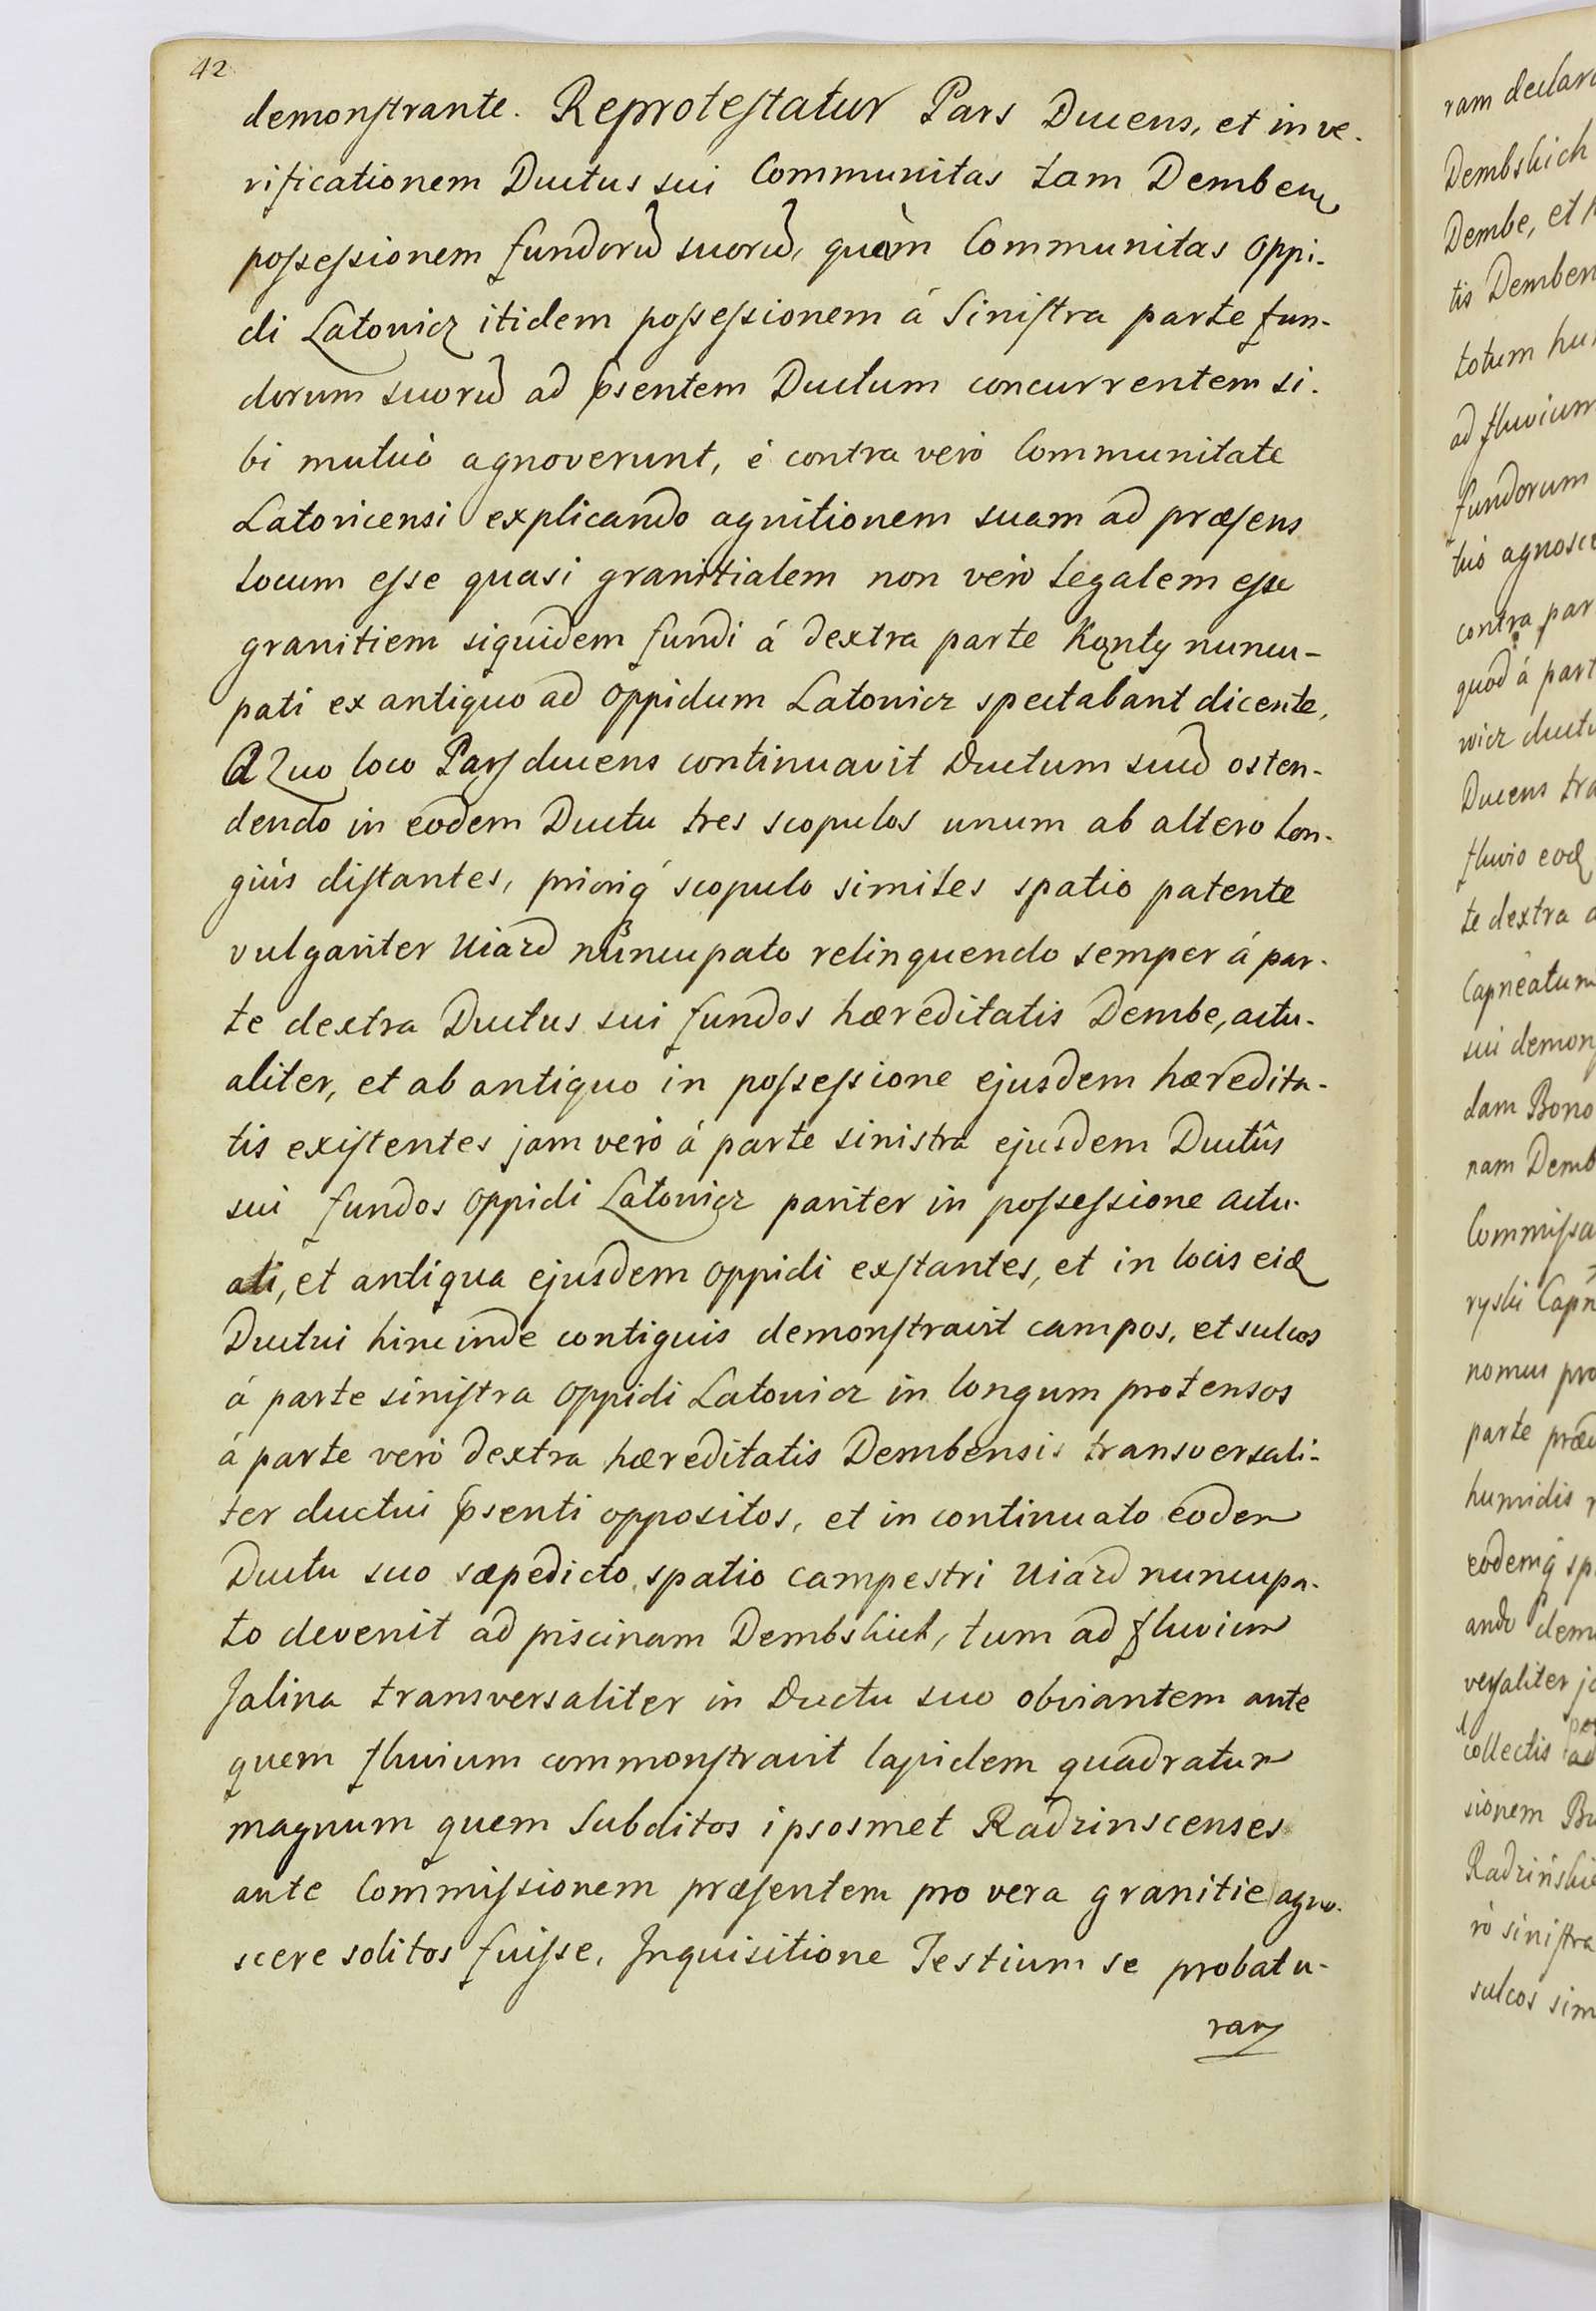 42
demonstrante. Reprotestatur Pars Ducens, et in ve-
rificationem Ductus sui Communitas tam Demben
possessionem fundorũ suorũ, quàm Communitas Oppi-
di Latowicz itidem possessionem á Sinistra parte fun-
dorum suorũ ad psentem Ductum concurrentem si-
bi mutuò agnoverunt, é contra verò Communitate
Latovicensi explicando agnitionem suam ad præsens
locum esse quasi granitialem non verò legalem esse
granitiem siquidem fundi á dextra parte Kąnty nuncu-
pati ex antiquo ad Oppidum Latowicz spectabant dicente,
A Quo loco Pars ducens continuavit Ductum suũ osten-
dendo in eodem Ductu tres scopulos unum ab altero lon-
giús distantes, prioríq scopulo similes spatio patente
vulgariter Uiazd nuncupato relinquendo semper á par-
te dextra Ductus sui fundos hæreditatis Dembe, actu-
aliter, et ab antiquo in possessione ejusdem hæredita-
tis existentes jam verò á parte sinistra ejusdem Ductûs
sui fundos Oppidi Latowicz pariter in possessione actu-
ali, et antiqua ejusdem Oppidi exstantes, et in locis eid
Ductui hinc inde contiguis demonstravit campos, et sulcos
á parte sinistra Oppidi Latowicz in longum protensos
á parte verò dextra hæreditatis Dembensis transversali-
ter ductui psenti oppositos, et in continuato eodem
Ductu suo sæpedicto spatio campestri Uiazd nuncupa-
to devenit ad piscinam Dembskich, tum ad fluvium
Jalina transversaliter in Ductu suo obviantem ante
quem fluvium commonstravit lapidem quadratum
magnum quem Subditos ipsosmet Radzinscenses
ante Commissionem præsentem pro vera granitie agno-
scere solitos fuisse, Inquisitione Testium se probatu-
ram
ram declara
Dembskich
Dembe, et
tis Demben
totum hu
ad fluvium
fundorum
tuò agnosce
contra par
quod á part
wicz ductu
Ducens tra
fluvio eod
te dextra a
Capneatum
sui demons
dam Bono
nam Demb
Commissa
ryski Capn
nomus pro
parte præd
humidis
eodemq sp
ando demo
versaliter ja
collectis ad
sionem Bu
Radzińskie
rò sinistra
sulcos sim